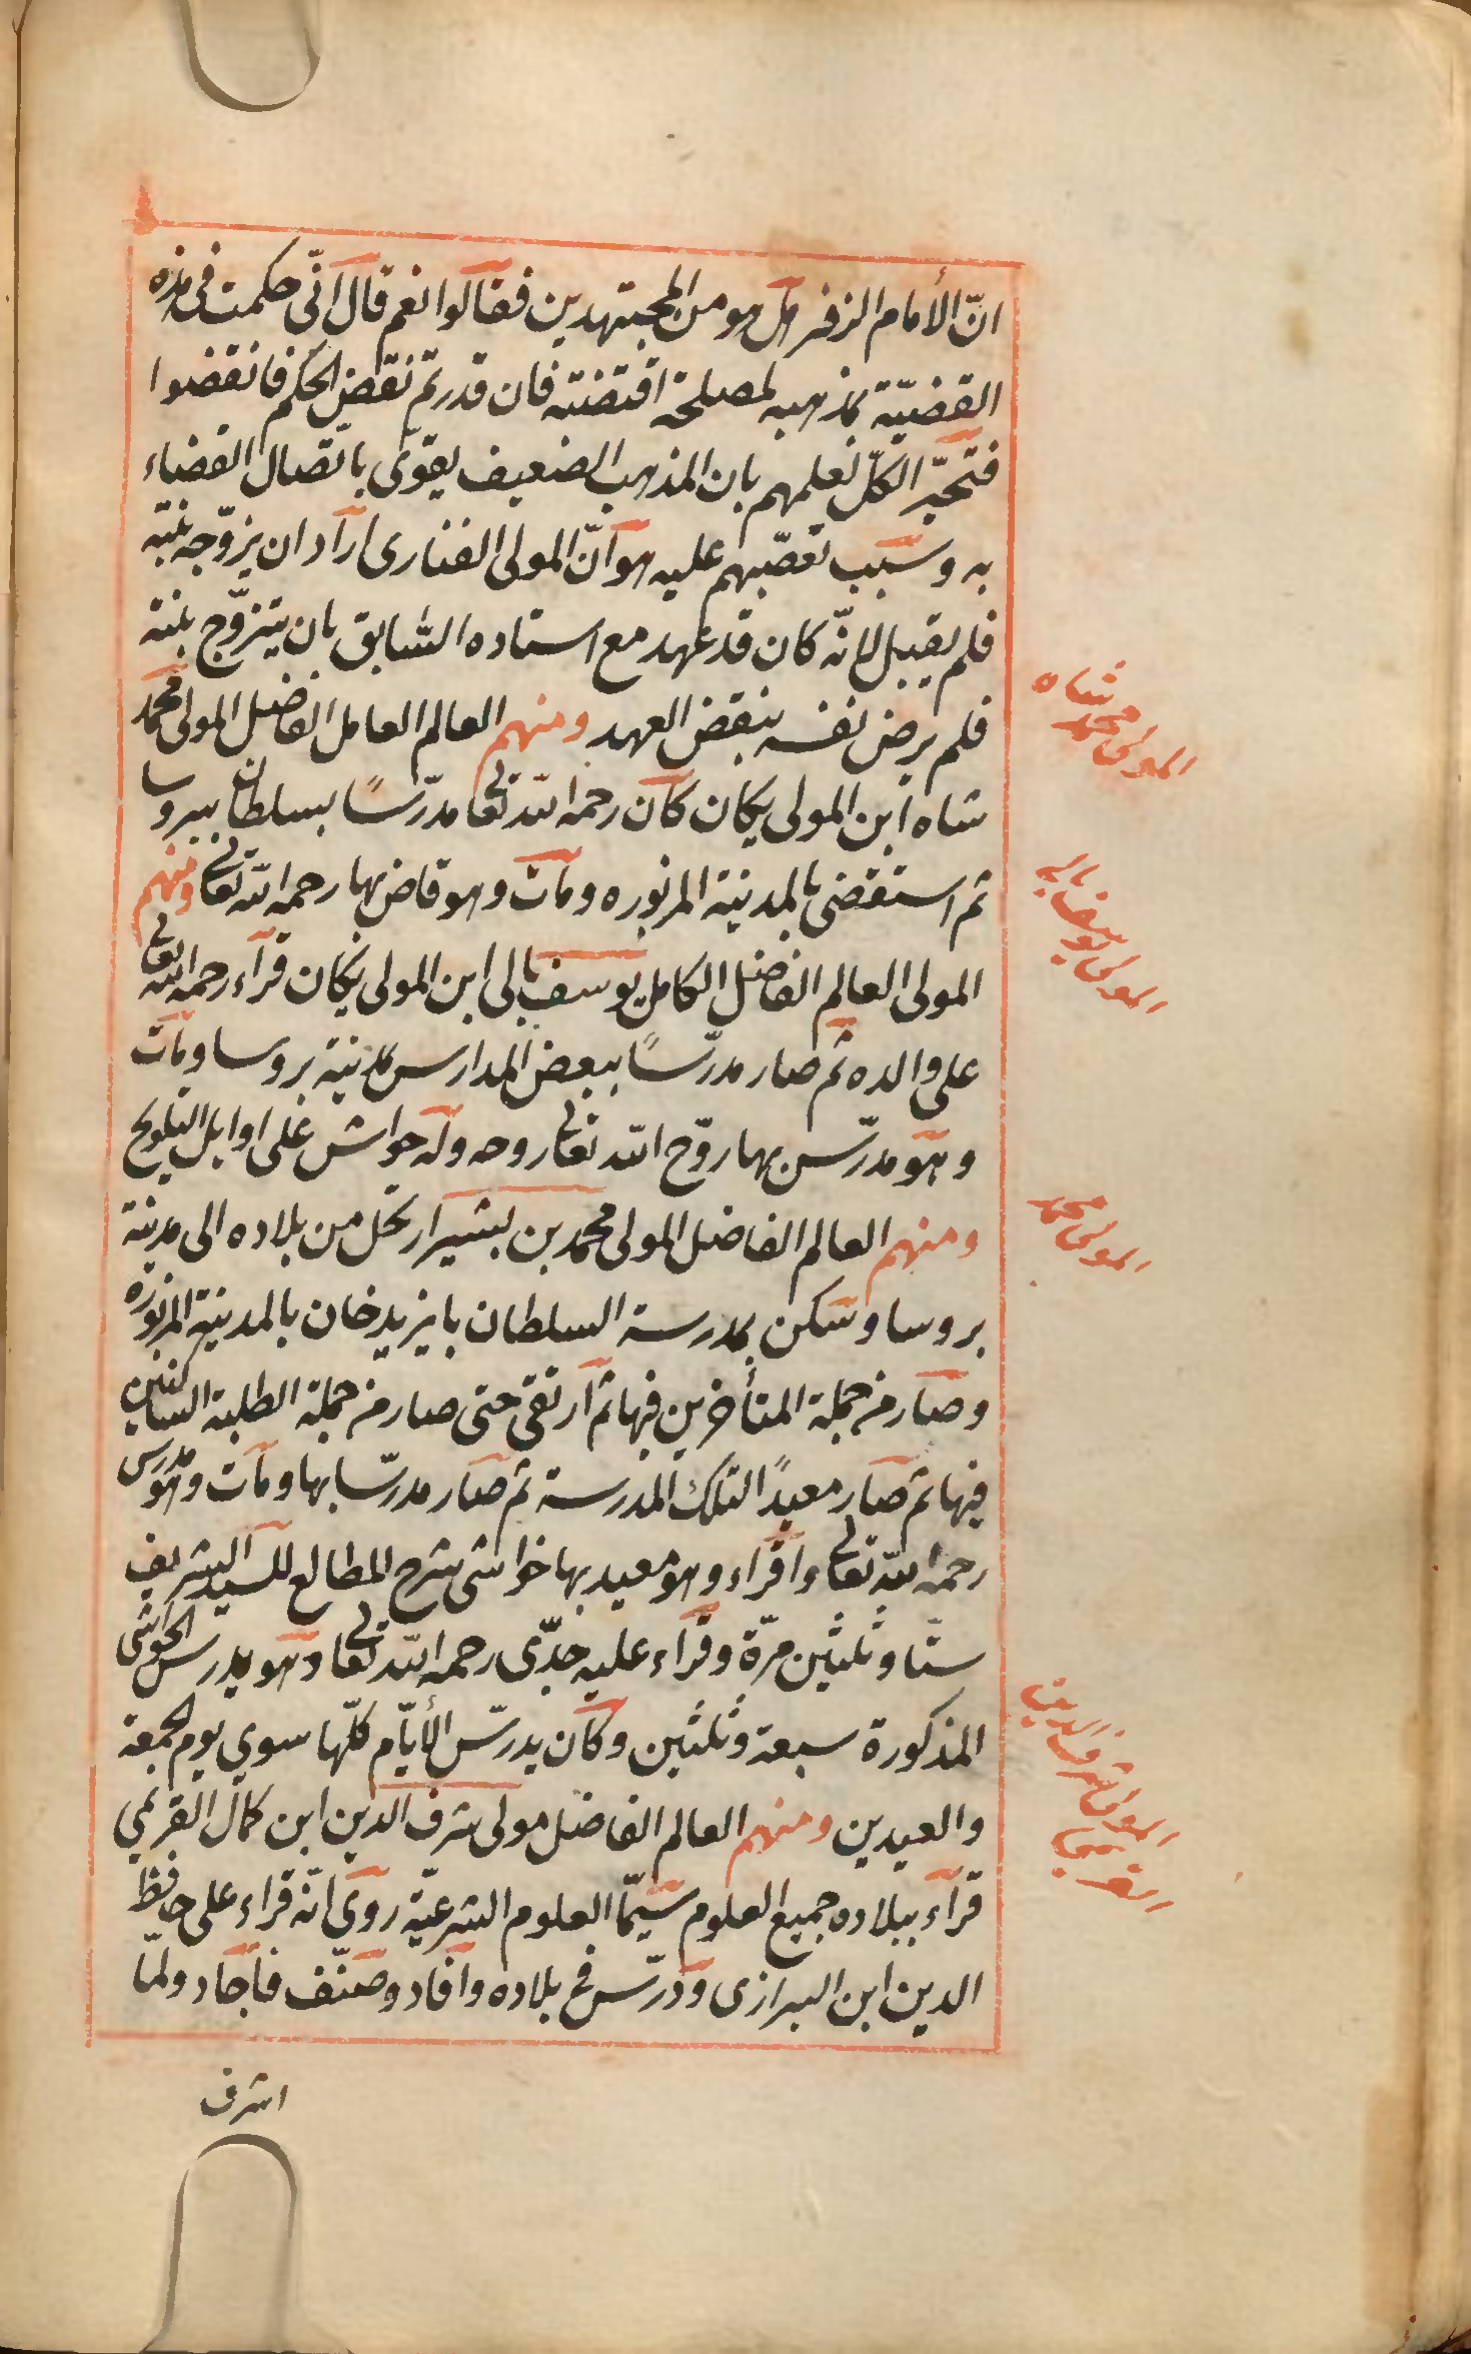 انّ الأمام الزفر هل هو من المجتهدين فقالوا نعم قال انّى حكمت فى هذه
القضيّة بمذهبه لمصلحة اقتضته فان قدرتم نقض الحكم فانقضوا
فتحيّر الكلّ لعلمهم بان المذهب الضعيف يقوى باتّصال القضاء
به وسبب تعصّبهم عليه هو انّ المولى الفنارى اراد ان يزوّجه بنته
فلم يقبل لانّه كان قد عهد مع استاده السّابق بان يتزوّج بنته
فلم يرض نفسه بنقض العهد ومنهم العالم العامل الفاضل المولى محمد
شاه ابن المولى يكان كان رحمه الله تعالى مدرّسًا بسلطان ببروسا
ثم استقضى بالمدينة المزبوره ومات وهو قاض بها رحمه الله تعالى ومنهم
المولى العالم الفاضل الكامل يوسف بالى ابن المولى يكان قرأء رحمه الله تعالى
على والده ثم صار مدرّسًا ببعض المدارس بمدينة بروسا ومات
وهو مدرّس بها روّح الله تعالى روحه وله حواش على اوايل التلويح
ومنهم العالم الفاضل المولى محمد بن بشير ارتحل من بلاده الى مدينة
بروسا وسكن بمدرسة السلطان بايزيد خان بالمدينة المزبوره
وصار من جملة المتأخرين فيها ثم ارتقى حتى صار من جملة الطلبة الساكنين
فيها ثم صار معيدًا لتلك المدرسة ثم صار مدرّسا بها ومات وهو مدرس
رحمه الله تعالى واقراء وهو معيد بها حواشى شرح المطالع للسيد الشريف
ستّا وثلثين مرّة وقراء عليه جدّى رحمه الله تعالى وهو يدرس الحواشى
المذكورة سبعة وثلثين وكان يدرّس الأيّام كلّها سوى يوم الجمعة
والعيدين ومنهم العالم الفاضل مولى شرف الدين ابن كمال القريمي
قرآء ببلاده جميع العلوم سيّما العلوم الشرعيّة روى انّه قراء على حافظ
الدين ابن البزازى ودرّس فى بلاده وافاد وصنّف فاجاد ولمّا
اشرف
المولى محمد شاه
المولى يوسف بالى
المولى محمد
المولى شرف الدين
القريمى